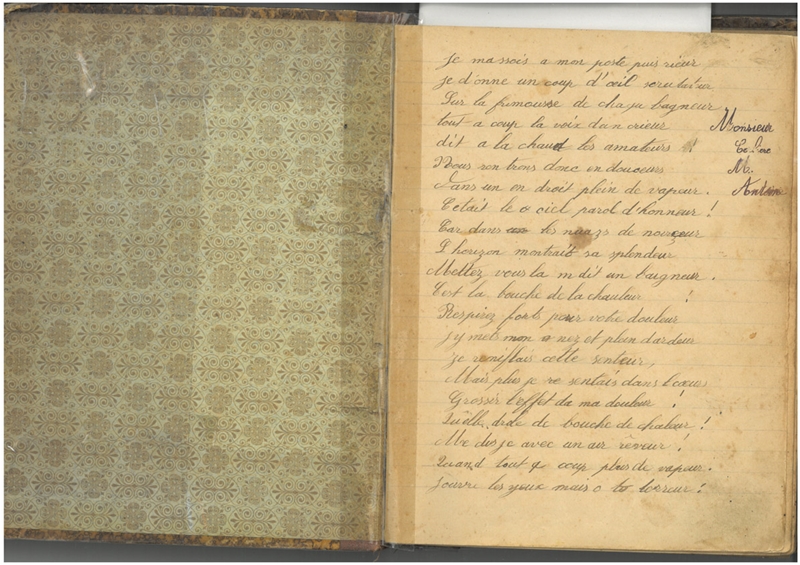 Je massois a mon poste puis rieur
je d'onne un coup d'œil scrutateur
Sur la frimousse de chaque bagneur
tout a coup la voix d'un crieur
dit a la chaud les amateurs !
Nous rentrons donc en douceurs
Dans un en droit plein de vapeur.
C'etait le ciel parol d'honneur !
Car dans les nuazs de noirceur
L horizon montrait sa splendeur
Mettez vous la m dit un baigneur.
C'est la bouche de la chaleur !
Respirez forts pour votre douleur
J'y mets mon nez et plein d'ardeur
je reniflais cette senteur,
Mais plus je re sentais dans l cœur
Grossir l'effet da ma douleur !
Quelle drole de bouche de chaleur !
Me dis je avec un air rêveur !
Quand tout coup plus de vapeur.
J ouvre les yeux mais o horreur !
Monsieur
M.
Antoin